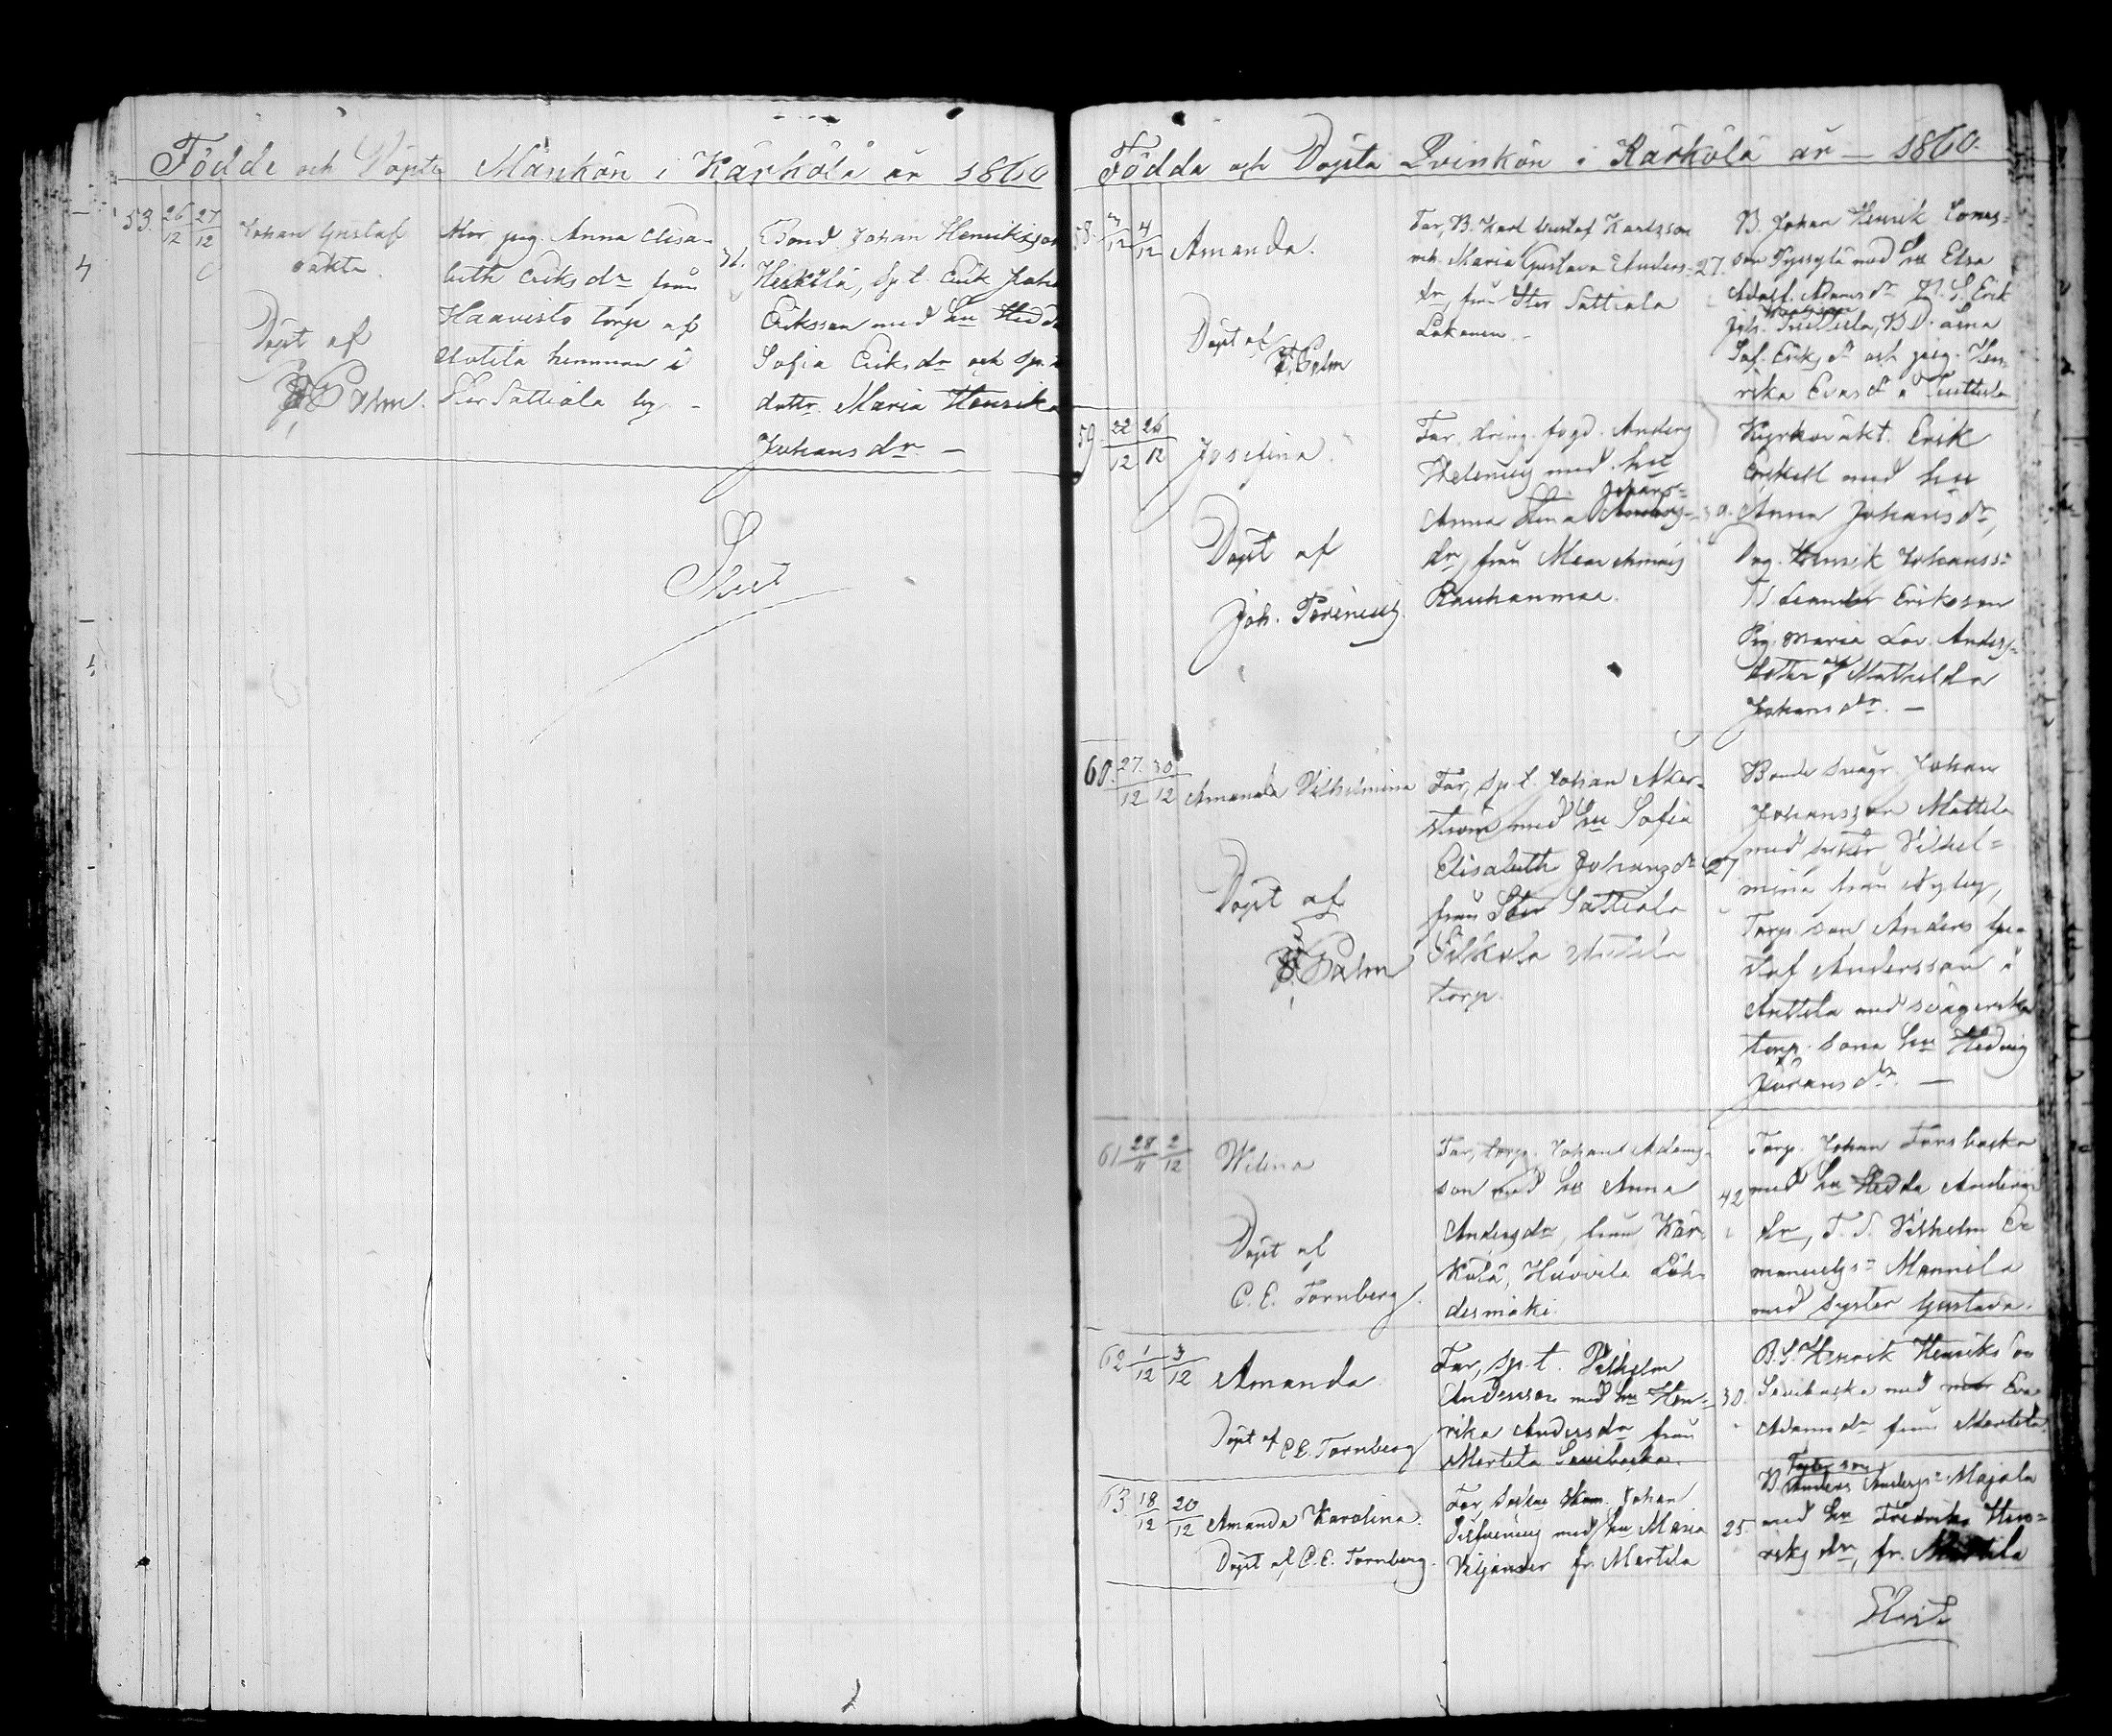 Födde och Döpte Mankön i Kärkölä år 1860
53. 26/12 27/12
Johan Gustaf
oäkta.
Döpt af
Palm.
Mor pig. Anna Elisa-
beth Eriksdr från
Haavisto torp af
Anttila hemman i
Stor Sattiala by. -
31.
Bond. Johan Henriksson
Heikkilä, sp.t. Erik Joha
Eriksson med hu Hedda
Sofia Eriksdr och sp.t.
dottr. Maria Henrika
Johansdr. -
Slut
Födda och Döpta Qvinkön i Kärkölä år - 1860.
58. 3/12 4/12 Amanda.
Döpt af
Palm
Far, B. Karl Gustaf Karlsson
och Maria Gustava Anders-
dr, från Stor Sattiala
27.
B. Johan Henrik
son med hu Elsa
Adolf. Adamsdr Erik
Joh. Tuittula,
Sof. Eriksdr och pig. Hen-
rika Evasdr Tuittula
59 22/12 26/12 Josefina.
Döpt af
Joh.
Far, dräng. fogd. Anders
med hu
Anna Lena Johans-
dr, från
Rauhanmaa.
Kyrkovakt. Erik
med hu
Anna Johansdr,
Drg. Henrik Johanss-
T.S. Leander Eriksson
Pig. Maria Lov. Anders-
dotter och Mathilda
Johansdr. -
60. 27/12 30/12 Amanda Vilhelmina
Döpt af
Palm
Far, sp.t. Johan Åker-
ström med hu Sofia
Elisabeth Johansdr
från Stor Sattiala
Anttila
torp.
27
Bonde svågr Johan
Johansson Mattila
med syster Vilhel-
mina från
Torp. son Anders Gu-
staf Andersson i
Anttila med svägerska
torp. sona hu Hedvig
Göransdr. -
61 28/11 2/12 Wilina
Döpt af
C. E. Tornberg.
Far, torp. Johan Adams-
son med hu Anna
Andersdr, från Kär-
kölä, Huovila Läh-
desmäki.
42
Torp. Johan Forsbacka
med hu Hedda Anders-
dr, T. S. Vilhelm E
manuelss- Mannila
med syster Gustava.
62 1/12 3/12 Amanda
Döpt af C E. Tornberg
Far, sp.t. Vilhelm
Andersson med hu Hen-
rika Andersdr från
Marttila Savibacka.
30.
B.S. Henrik Henriksson
Savibacka med mor Eva
Adamsdr från Marttila
63. 18/12 20/12 Amanda Karolina.
Döpt af C. E. Tornberg.
Far, sockne skom. Johan
med hu Maria
Viljander fr. Marttila
25.
B. Anders Anderss- Majala
med hu Fredrika Hen-
riks dr, fr. Marttila
Slut